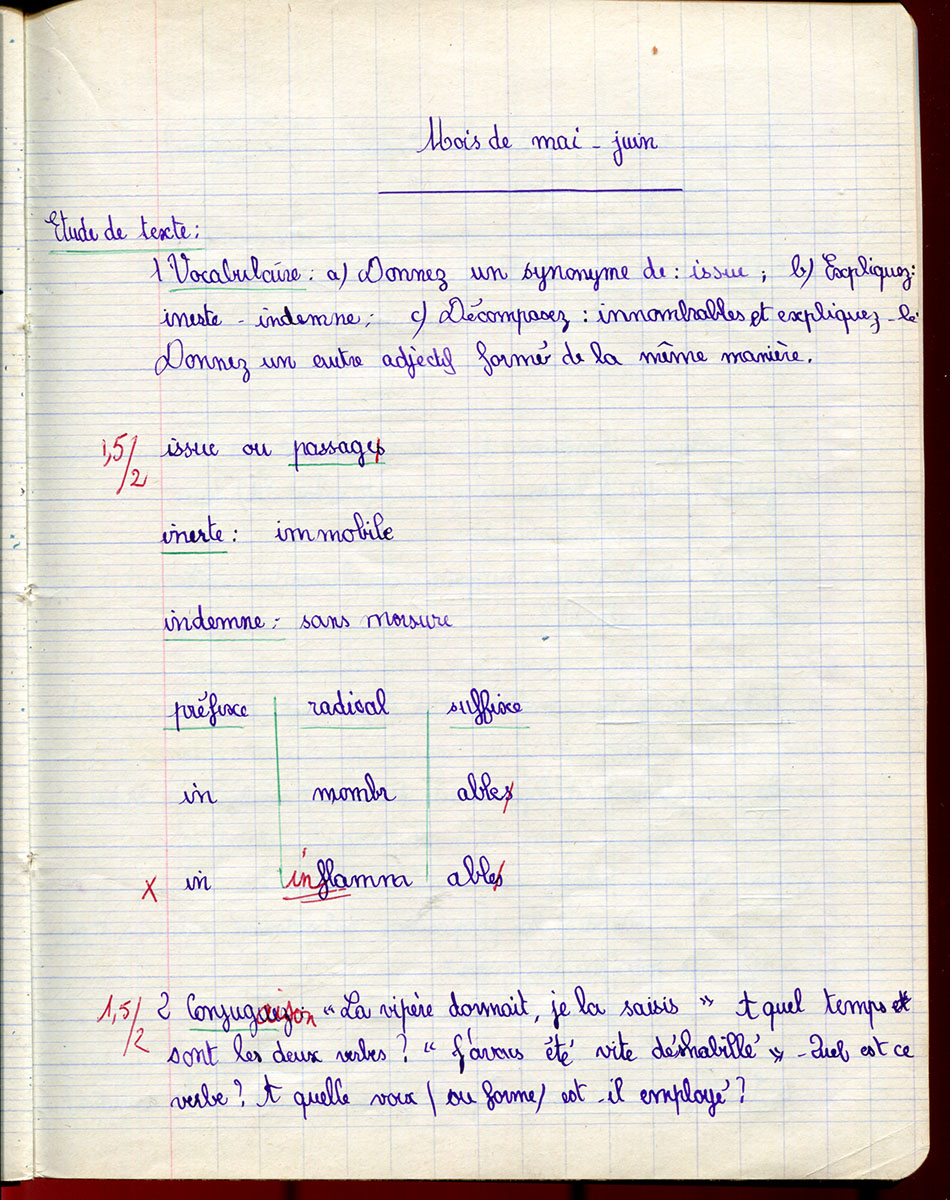 Mois de mai - juin
Etude de texte :
1 Vocabulaire : a) Donnez un synonyme de : issue ; b) Expliquez :
inerte - indemne ; c) Décomposez : innombrables et expliquez - le
Donnez un autre adjectif formé de la même manière.
1,5/2 issue ou passage
inerte : immobile
indemne : sans morsure
préfixe radical suffixe
in nombr ables
x in inflamm ables
1,5/2 2 Conjugaison "La vipère dormait, je la saisis" A quel temps
sont les deux verbes ? "J'avais été vite déshabillé" - Quel est ce
verbe ? A quelle voix (ou forme) est-il employé ?